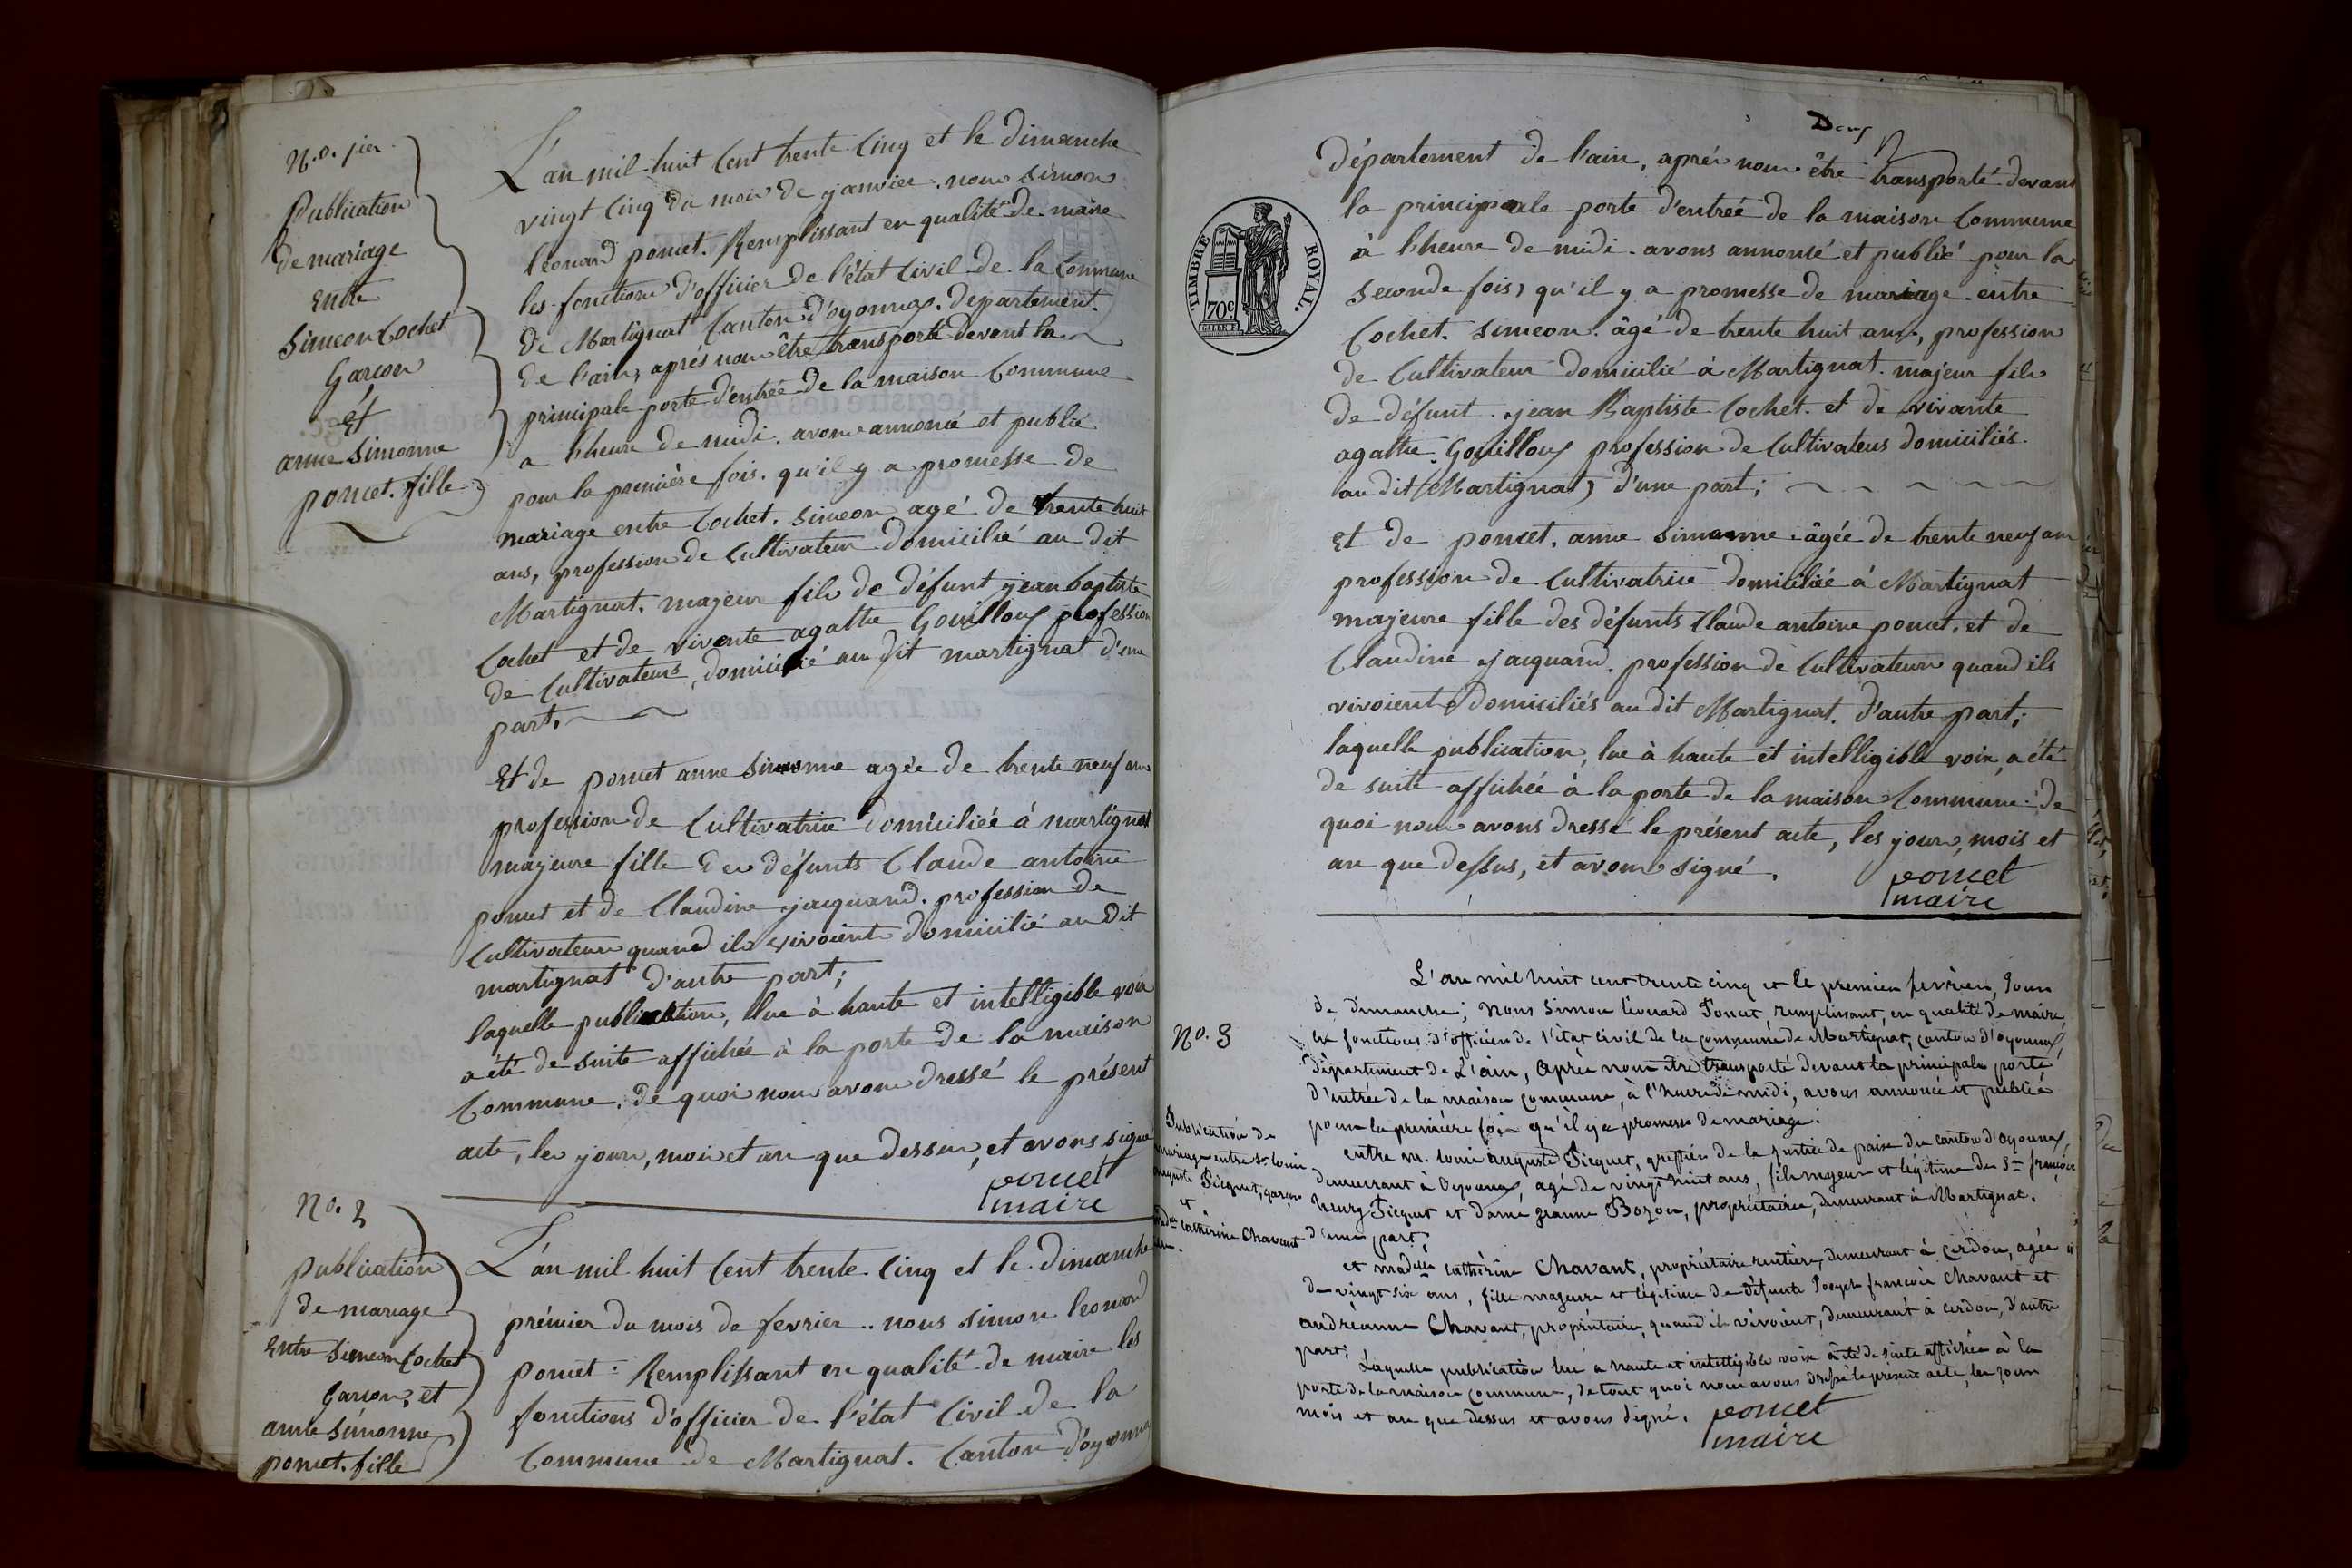 N.o. 1ier
Publication
de mariage
Entre
Simeon Cochet
Garcon
et
anne Simonne
poncet. fille
L'an mil huit Cent trente Cinq et le dimanche
vingt Cinq du mois de janvier. nous Simon
léonard poncet. Remplissant en qualité de maire
les fonctions d'officier de l'état Civil de la Commune
de Martignat Canton d'oyonnax. département.
de l'ain, aprés nous être transporté devant la
principale porte d'entrée de la maison Commune
a l'heure de midi. avons annoncé et publié
pour la première fois. qu'il y a promesse de
mariage entre Cochet. Simeon agé de trente huit
ans, profession de Cultivateur domicilié au dit
Martignat. majeur fils de défunt jean baptiste
Cochet et de vivante agathe Gouilloux profession
de Cultivateurs, domicilié au dit martignat d'une
part.
Et de poncet anne Simonne agée de trente neuf ans
profession de Cultivatrice domiciliée à martignat
majeure fille des défunts Claude antoine
poncet et de Claudine jacquand. profession de
Cultivateurs quand ils vivoients domicilié au dit
martignat d'autre part;
laquelle publication, lue à haute et intelligible voix
a été de suite affichée à la porte de la maison
Commune. de quoi nous avons dressé le présent
acte, les jour, mois et an que dessus, et avons signé
poncet
maire
No. 2
publication
de mariage
Entre Simeon Cochet
Garcon, et
anne Simonne
poncet. fille
L'an mil huit Cent trente Cinq et le dimanche
prémier du mois de fevrier .. nous Simon leonard
poncet : Remplissant en qualité de maire les
fonctions d'officier de l'état Civil de la
Commune de Martignat. Canton d'oyonnax
Deux
département de l'ain, aprés nous être transporté devant
la principale porte d'entrée de la maison Commune
à l'heure de midi. avons annoncé et publié pour la
seconde fois, qu'il y a promesse de mariage entre
Cochet. Simeon. âgé de trente huit ans, profession
de Cultivateur domicilié à Martignat. majeur fils
de défunt. jean Baptiste Cochet. et de vivante
agathe. Gouilloux profession de Cultivateurs domiciliés.
au dit (Martignat) d'une part;
Et de poncet. anne Simonne âgée de trente neuf ans
profession de Cultivatrice domiciliée à Martignat
majeure fille des défunts Claude antoine poncet. et de
Claudine jacquand. profession de Cultivateurs quand ils
vivoients domiciliés au dit Martignat. d'autre part;
laquelle publication, lue à haute et intelligible voix, a été
de suite affichée à la porte de la maison Commune. de
quoi nous avons dressé le présent acte, les jours, mois et
an que dessus, et avons signé.
poncet
maire
TIMBRE ROYAL.
70c
No. 3
Publication de
mariage entre Sr. Louis
auguste Picquet, garçon
et
Catherine Chavant
L'an mil huit cent trente cinq et le premier fevrier, jour
de dimanche; Nous Simon léonard Poncet, remplissant, en qualité de maire,
les fonctions d'officier de l'état civil de la commune de Martignat, canton d'oyonnax,
département de L'ain, Après nous être transporté devant la principale porte
d'entrée de la maison commune, à l'heure de midi, avons annoncé et publié
pour la première fois qu'il y a promesse de mariage:
entre M. Louis Auguste Picquet, greffier de la justice de paix du canton d'Oyonnax,
demeurant à Oyonnax, agé de vingt huit ans, fils majeur et légitime de Sr. françois
henry Picquet et dame jeanne Bozon, propriétaires, demeurant à Martignat.
d'une part;
et madelle Catherine Chavant, propriétaire rentière, demeurant à Cerdon, agée
de vingt six ans, fille majeure et légitime de défunts Joseph françois Chavant et
andréanne Chavant, propriétaires, quand ils vivoient, demeurant à Cerdon, d'autre
part;
Laquelle publication lue à haute et intelligible voix a été de suite affichée à la
porte de la maison commune, de tout quoi nous avons dressé le présent acte, les jour
mois et an que dessus et avons signé.
poncet
maire